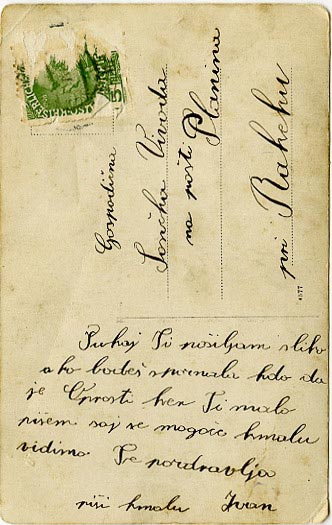 Gospodična
Sončka Vivoda
na pošti Planina
pri Rakeku
4577
Tukaj Ti pošiljam sliko
ako bodeš spoznala kdo da
je Oprosti ker Ti malo
pišem saj se mogoče kmalu
vidimo Te pozdravlja
piši kmalu Ivan